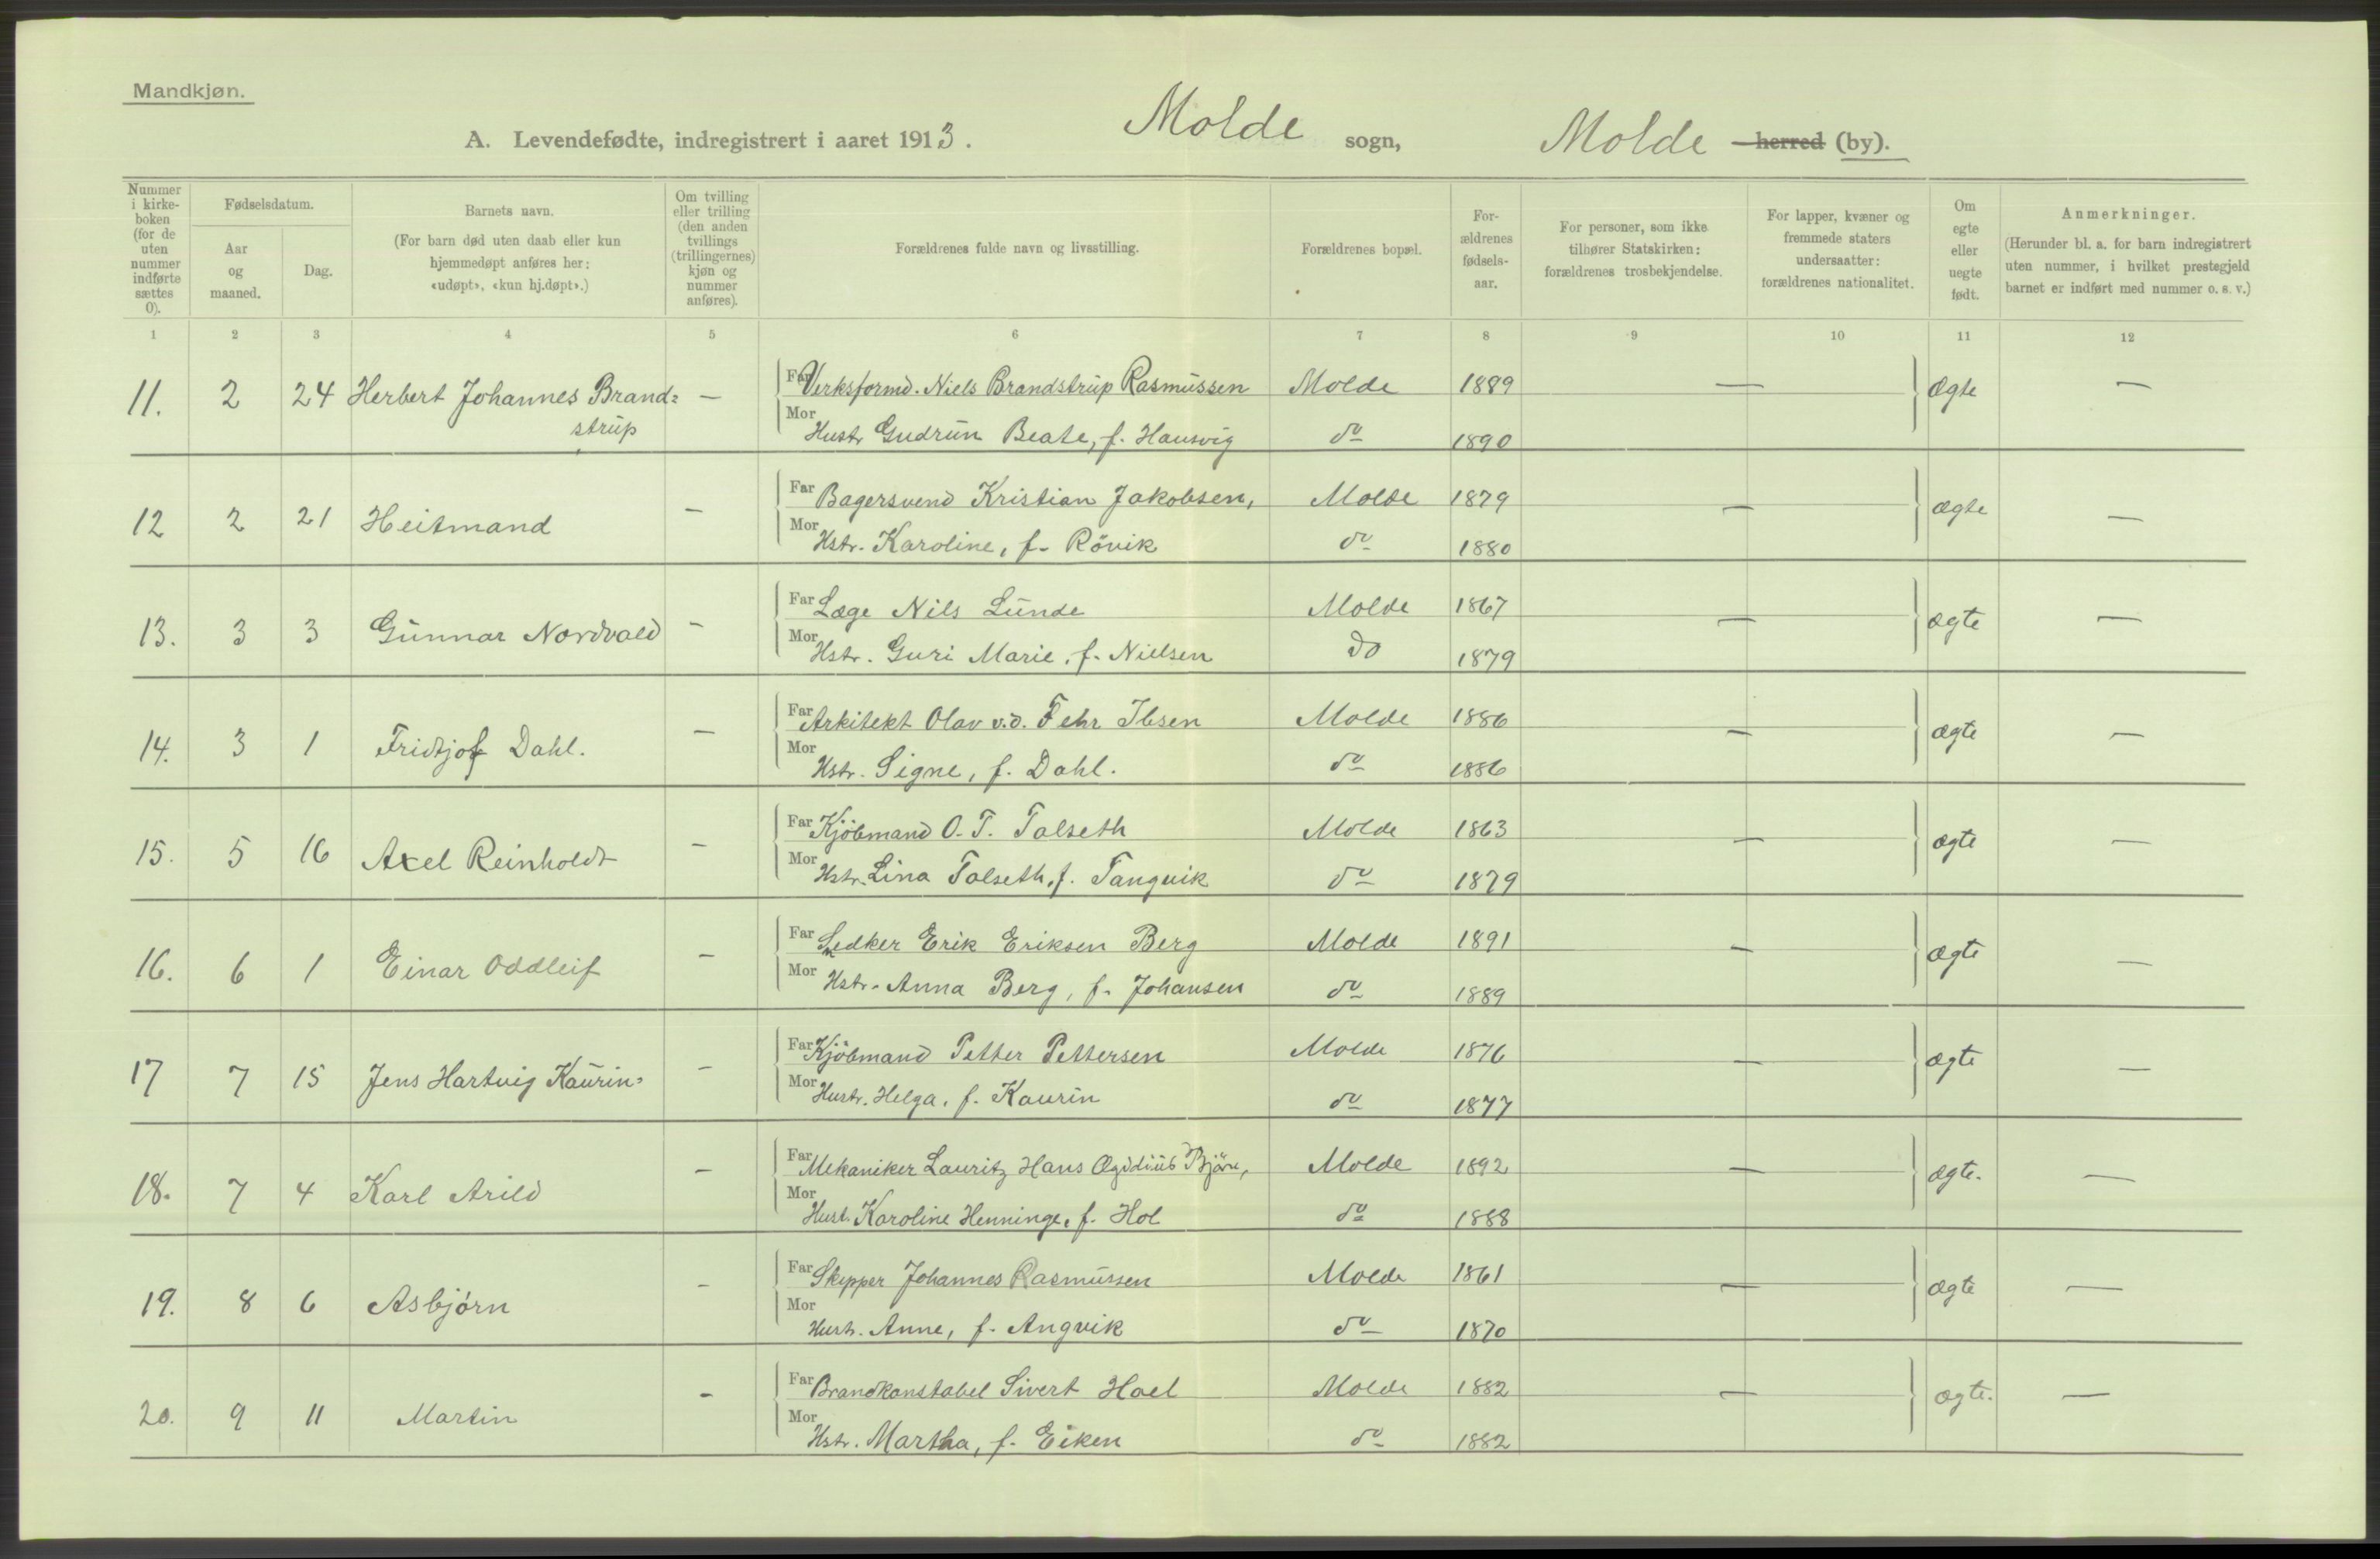 Mandkjøn.
A. Levendefødte, indregistrert i aaret 1913. Molde sogn, Molde herred (by).
Nummer i kirke-boken (for de uten nummer indførte sættes 0). Fødselsdatum. Aar og maaned. Dag. Barnets navn. (For barn død uten daab eller kun hjemmedøpt anføres her: «udøpt», «kun hj.døpt».) Om tvilling eller trilling (den anden tvillings (trillingernes) kjøn og nummer anføres). Forældrenes fulde navn og livsstilling. Forældrenes bopæl. For-ældrenes fødsels-aar. For personer, som ikke tilhører Statskirken: forældrenes trosbekjendelse. For lapper, kvæner og fremmede staters undersaatter: forældrenes nationalitet. Om egte eller uegte født. Anmerkninger. (Herunder bl. a. for barn indregistrert uten nummer, i hvilket prestegjeld barnet er indført med nummer o. s. v.)
1 2 3 4 5 6 7 8 9 10 11 12
11. 2 24 Herbert Johannes Brand= — Far Verksformd. Niels Brandstrup Rasmussen Molde 1889 — Ægte —
strup Mor Hustr Gudrun Beate, f. Hausvig do 1890
12 2 21 Heitmand — Far Bagersvend Kristian Jakobsen, Molde 1879 — ægte —
Mor Hstr. Karoline, f. Rövik do 1880
13. 3 3 Gunnar Nordvald — Far Læge Nils Lunde Molde 1867 — ægte —
Mor Hstr. Guri Marie, f. Nielsen do 1879
14. 3 1 Fridtjof Dahl. — Far Arkitekt Olav v.d. Fehr Ibsen Molde 1886 — ægte —
Mor Hstr. Signe, f. Dahl. do 1886
15. 5 16 Axel Reinholdt — Far Kjöbmand O. T. Talseth Molde 1863 — ægte —
Mor Hstr. Lina Talseth, f. Tangvik do 1879
16. 6 1 Einar Oddleif — Far Erik Eriksen Berg Molde 1891 — ægte —
Mor Hstr. Anna Berg, f. Johansen do 1889
17 7 15 Jens Hartvig Kaurin= — Far Kjöbmand Petter Pettersen Molde 1876 — ægte —
Mor Hustr. Helga, f. Kaurin do 1877
18. 7 4 Karl Arild — Far Mekaniker Lauritz Hans Ægidius Björe, Molde 1892 — ægte. —
Mor Hust. Karoline Henninge, f. Hol do 1888
19. 8 6 Asbjörn — Far Skipper Johannes Rasmussen Molde 1861 — ægte —
Mor Hustr. Anne, f. Angvik do 1870
20. 9 11 Martin — Far Brandkonstabel Sivert Hoel Molde 1882 — ægte. —
Mor Hstr. Martha, f. Eiken do 1882